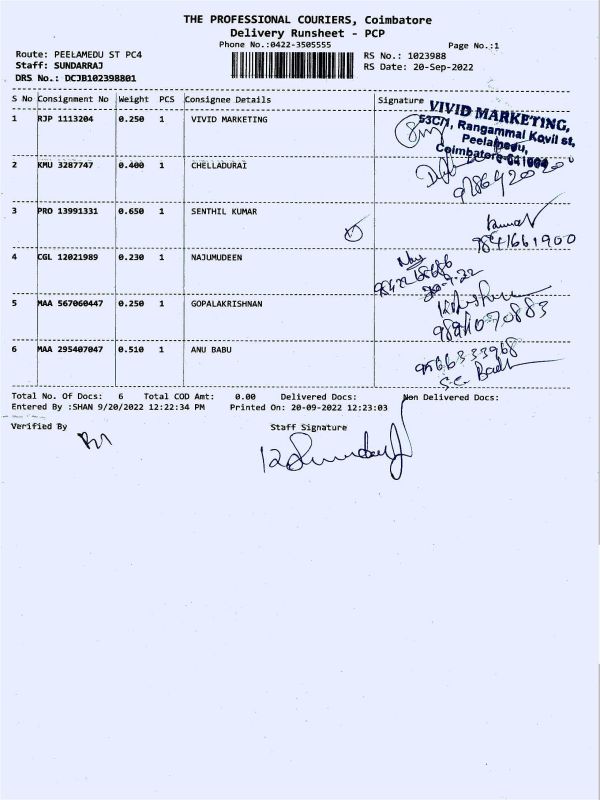 THE PROFESSIONAL COURIERS, Coimbatore
Delivery Runsheet - PCP
Phone No.:0422-3505555
Page No.:1
Route: PEELAMEDU ST PC4
RS No.: 1023988
Staff: SUNDARRAJ
RS Date: 20-Sep-2022
DRS No.: DCJB102398801
S No Consignment No Weight PCS Consignee Details Signature
VIVID MARKETING,
53C/1, Rangammal Kovil st,
Peelamedu,
Coimbatore-641004
1 RJP 1113204 0.250 1 VIVID MARKETING
2 KMU 3287747 0.400 1 CHELLADURAI
3 PRO 13991331 0.650 1 SENTHIL KUMAR
9841661900
4 CGL 12021989 0.230 1 NAJUMUDEEN
5 MAA 567060447 0.250 1 GOPALAKRISHNAN
6 MAA 295407047 0.510 1 ANU BABU
9566333968
Total No. Of Docs: 6 Total COD Amt: 0.00 Delivered Docs: Non Delivered Docs:
Entered By :SHAN 9/20/2022 12:22:34 PM Printed On: 20-09-2022 12:23:03
Verified By Staff Signature